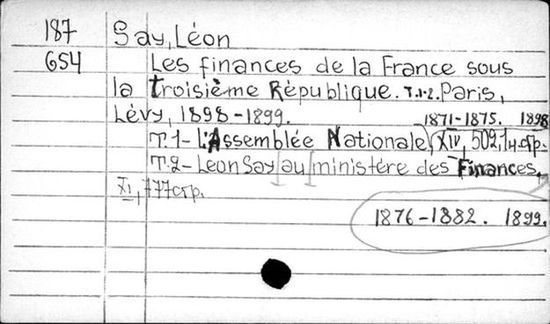 187 Say, Léon
654 Les finances de la France sous
la troisième République. T.1-2. Paris,
Lévy, 1898-1899. 1871-1875. 1898
T.1- L'Assemblée Nationale, XIV, 509, 1 н. стр.
T.2- Leon Say au ministère des Finances.
XI, 777 стр.
1876-1882. 1899.